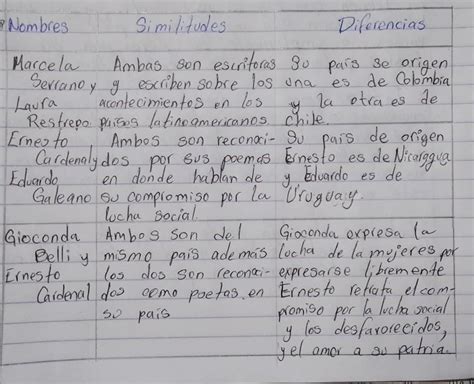 Nombres Similitudes Diferencias
Marcela Ambas son escritoras Su país se origen
Serrano y y escriben sobre los una es de Colombia
Laura acontecimientos en los y la otra es de
Restrepo países latinoamericanos chile.
Ernesto Ambos son reconoci- Su país de origen
Cardenal y dos por sus poemas Ernesto es de Nicaragua
Eduardo en donde hablan de y Eduardo es de
Galeano su compromiso por la Uruguay.
lucha social.
Gioconda Ambos son del Gioconda expresa la
Belli y mismo país además lucha de la mujeres por
Ernesto los dos son reconoci- expresarse libremente
Cardenal dos como poetas en Ernesto retrata el com-
su país promiso por la lucha social
y los desfavorecidos,
y el amor a su patria.